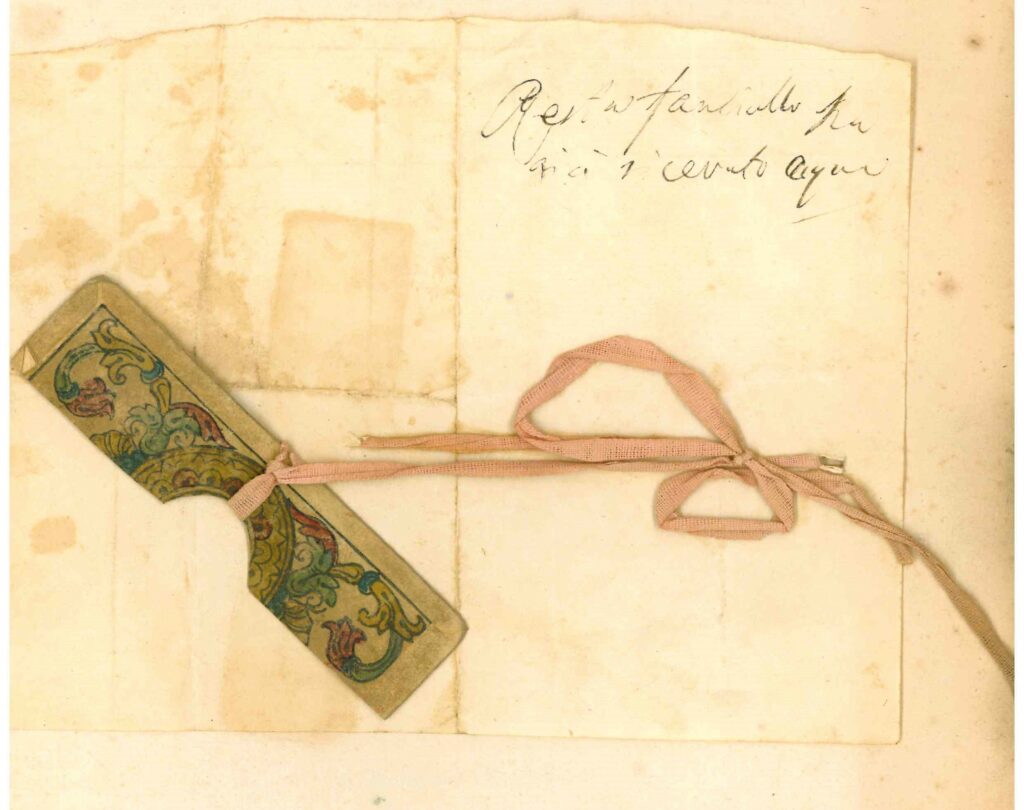 Questo fanciullo ha
già ricevuto acqua